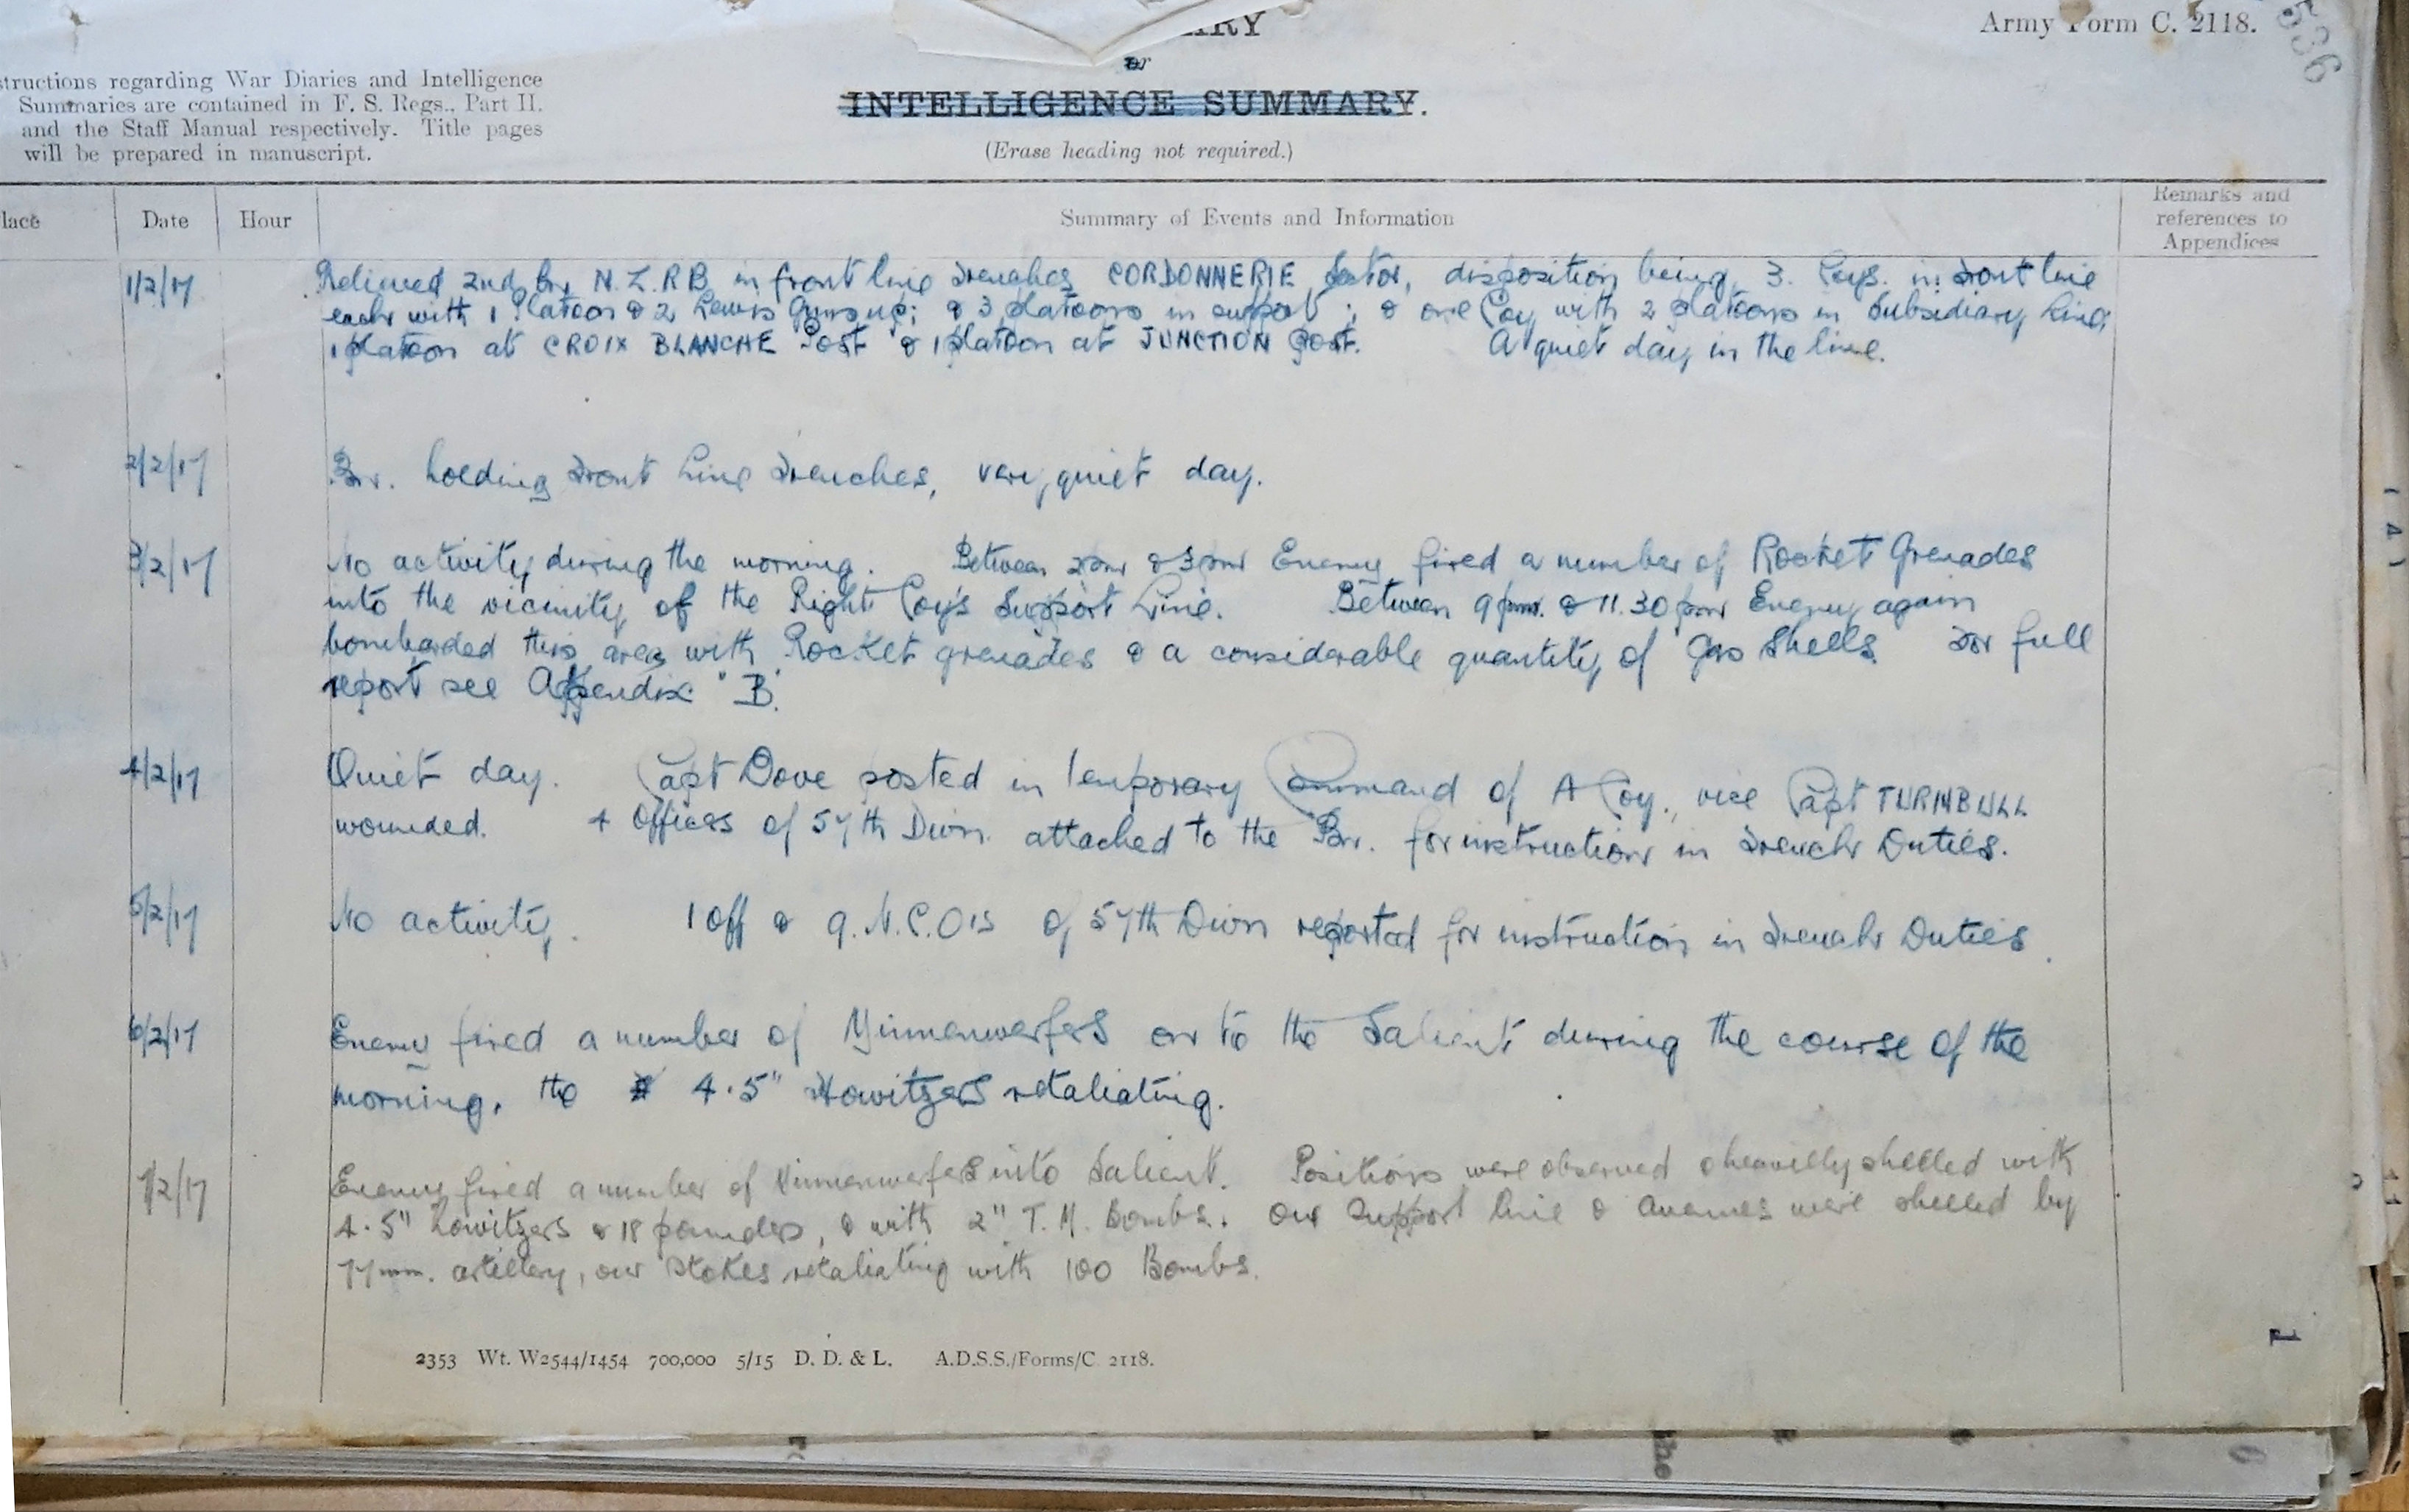 ARY
Army Form C. 2118.
536
or
structions regarding War Diaries and Intelligence
Summaries are contained in F. S. Regs., Part II.
and the Staff Manual respectively. Title pages
will be prepared in manuscript.
INTELLIGENCE SUMMARY.
(Erase heading not required.)
lace
Date
Hour
Summary of Events and Information
Remarks and
references to
Appendices
1/2/17 Relieved 2nd Bn N.Z.R.B. in front line trenches CORDONNERIE Sector, disposition being 3. Coys. in front line
each with 1 Platoon & 2 Lewis Guns up; & 3 platoons in support; & one Coy with 2 platoons in Subsidiary Line;
1 platoon at CROIX BLANCHE Post & 1 platoon at JUNCTION Post. A quiet day in the line.
2/2/17 Bn. holding Front Line Trenches, very quiet day.
3/2/17 No activity during the morning. Between 2pm & 3pm Enemy fired a number of Rocket Grenades
into the vicinity of the Right Coy's Support Line. Between 9pm. & 11.30pm Enemy again
bombarded this area with Rocket grenades & a considerable quantity of Gas Shells. For full
report see Appendix "B".
4/2/17 Quiet day. Capt Dove posted in temporary Command of A Coy., vice Capt TURNBULL
wounded. 4 Officers of 57th Divn. attached to the Bn. for instruction in Trench Duties.
5/2/17 No activity. 1 Off & 9. N.C.O's of 57th Divn reported for instruction in Trench Duties.
6/2/17 Enemy fired a number of Minnenwerfers on to the Salient during the course of the
morning, the 4.5" Howitzers retaliating.
7/2/17 Enemy fired a number of Minnenwerfers into Salient. Positions were observed & heavilly shelled with
4.5" howitzers & 18 pounders, & with 2" T.M. Bombs. Our Support line & Avenues were shelled by
77mm. artillery, our Stokes retaliating with 100 Bombs.
2353 Wt. W2544/1454 700,000 5/15 D. D. & L. A.D.S.S./Forms/C. 2118.
the